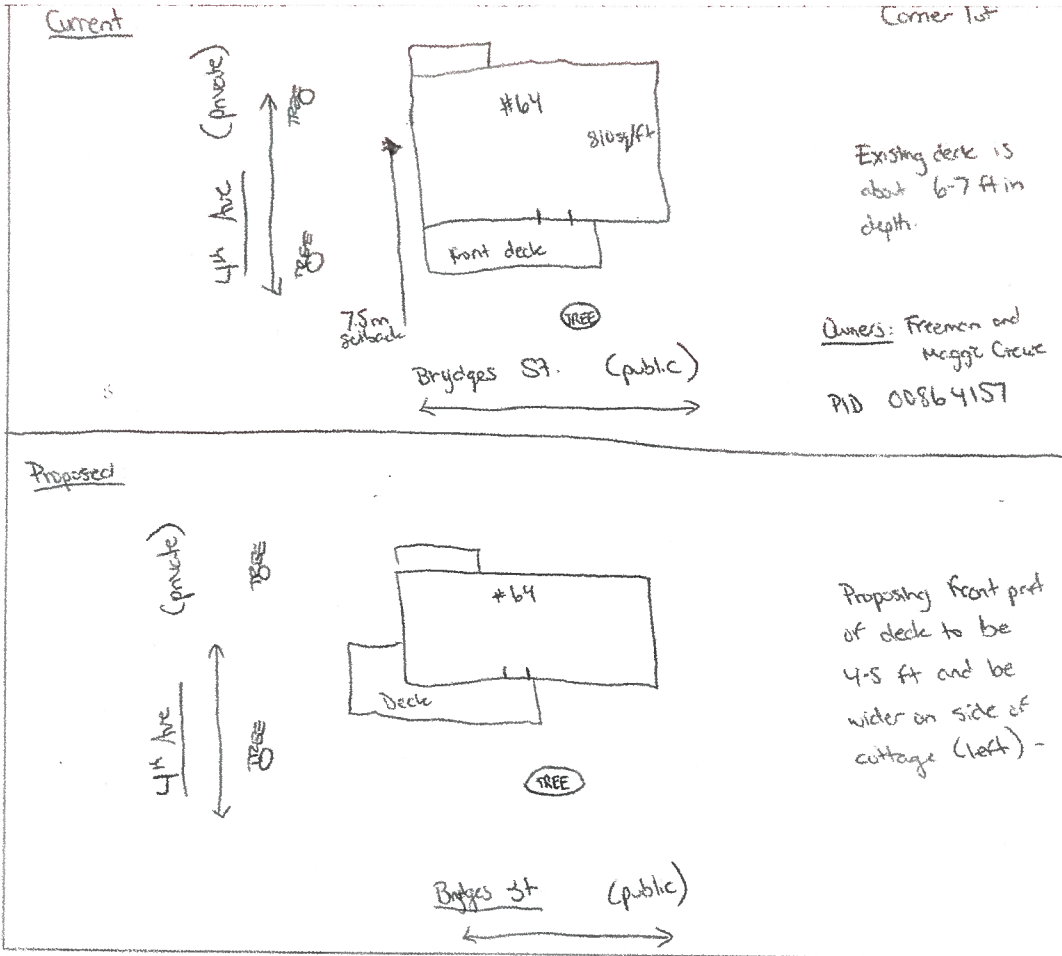 Current
Corner lot
(private)
4th Ave
TREE
TREE
#64
810 sq/ft
Front deck
7.5m
setback
TREE
Brydges St. (public)
Existing deck is
about 6-7 ft in
depth.
Owners: Freeman and
Maggie Crewe
PID 00864157
Proposed
(private)
4th Ave
TREE
TREE
#64
Deck
TREE
Brydges St (public)
Proposing front part
of deck to be
4-5 ft and be
wider on side of
cottage (left) -